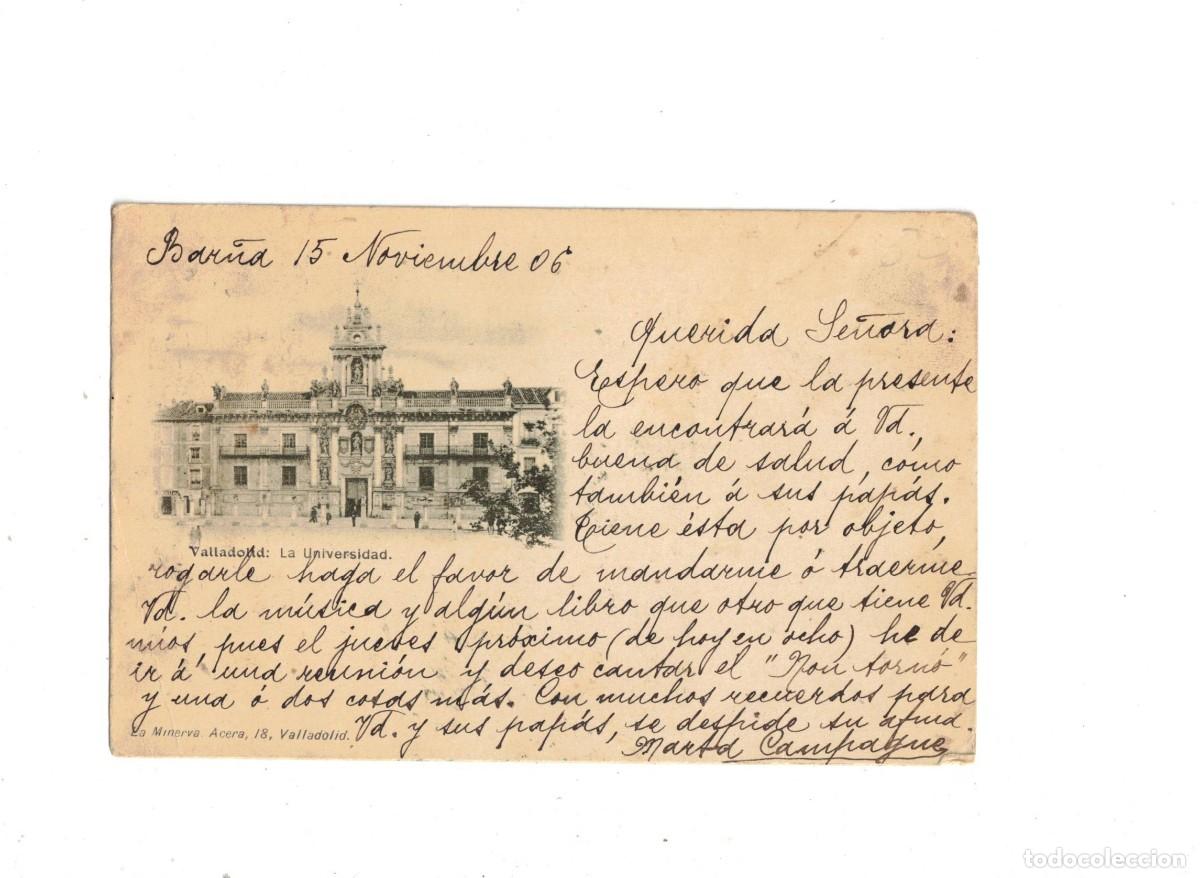 Barña 15 Noviembre 06
Querida Señora:
Espero que la presente
la encontrará á Vd.,
buena de salud, como
también á sus papás.
Tiene ésta por objeto,
Valladolid: La Universidad.
rogarle haga el favor de mandarme ó traerme
Vd. la música y algún libro que otro que tiene Vd.
mios, pues el jueves próximo (de hoy en ocho) he de
ir á una reunión y deseo cantar el "Non tornó"
y una ó dos cosas más. Con muchos recuerdos para
Vd. y sus papás, se despide su afma.
La Minerva. Acera, 18, Valladolid.
Marta Campagne
todocoleccion